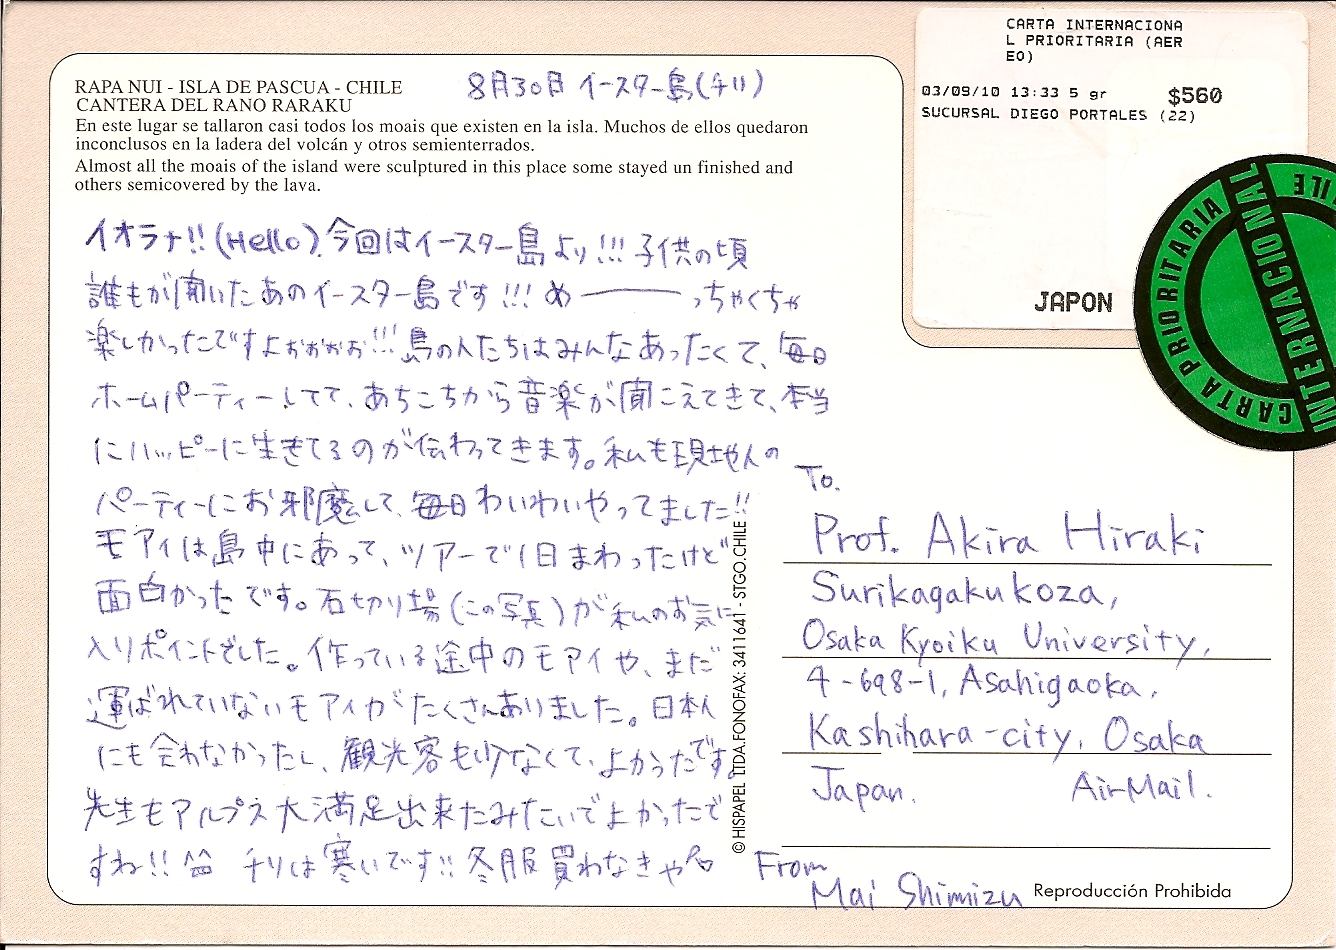 CARTA INTERNACIONA
L PRIORITARIA (AER
EO)
03/09/10 13:33 5 gr $560
SUCURSAL DIEGO PORTALES (22)
JAPON
CARTA PRIORITARIA
INTERNACIONAL
RAPA NUI - ISLA DE PASCUA - CHILE
CANTERA DEL RANO RARAKU
En este lugar se tallaron casi todos los moais que existen en la isla. Muchos de ellos quedaron
inconclusos en la ladera del volcán y otros semienterrados.
Almost all the moais of the island were sculptured in this place some stayed un finished and
others semicovered by the lava.
8月30日 イースター島(チリ)
イオラナ!!(Hello).今回はイースター島より!!!子供の頃
誰もが聞いたあのイースター島です!!!め――――っちゃくちゃ
楽しかったですよぉぉぉぉ!!!島の人たちはみんなあったくて、毎日
ホームパーティーしてて、あちこちから音楽が聞こえてきて、本当
にハッピーに生きてるのが伝わってきます。私も現地人の
パーティーにお邪魔して、毎日わいわいやってました!!
モアイは島中にあって、ツアーで1日まわったけど
面白かったです。石切り場(この写真)が私のお気に
入りポイントでした。作っている途中のモアイや、まだ
運ばれていないモアイがたくさんありました。日本人
にも会わなかったし、観光客も少なくて、よかったです。
先生もアルプス大満足出来たみたいでよかったで
すね!!^^ チリは寒いです!!冬服買わなきゃ
To.
Prof. Akira Hiraki
Surikagaku koza,
Osaka Kyoiku University,
4-698-1, Asahigaoka,
Kashihara-city, Osaka
Japan. Air Mail.
From
Mai Shimizu
© HISPAPEL LTDA.FONOFAX: 3411641 - STGO.CHILE
Reproducción Prohibida